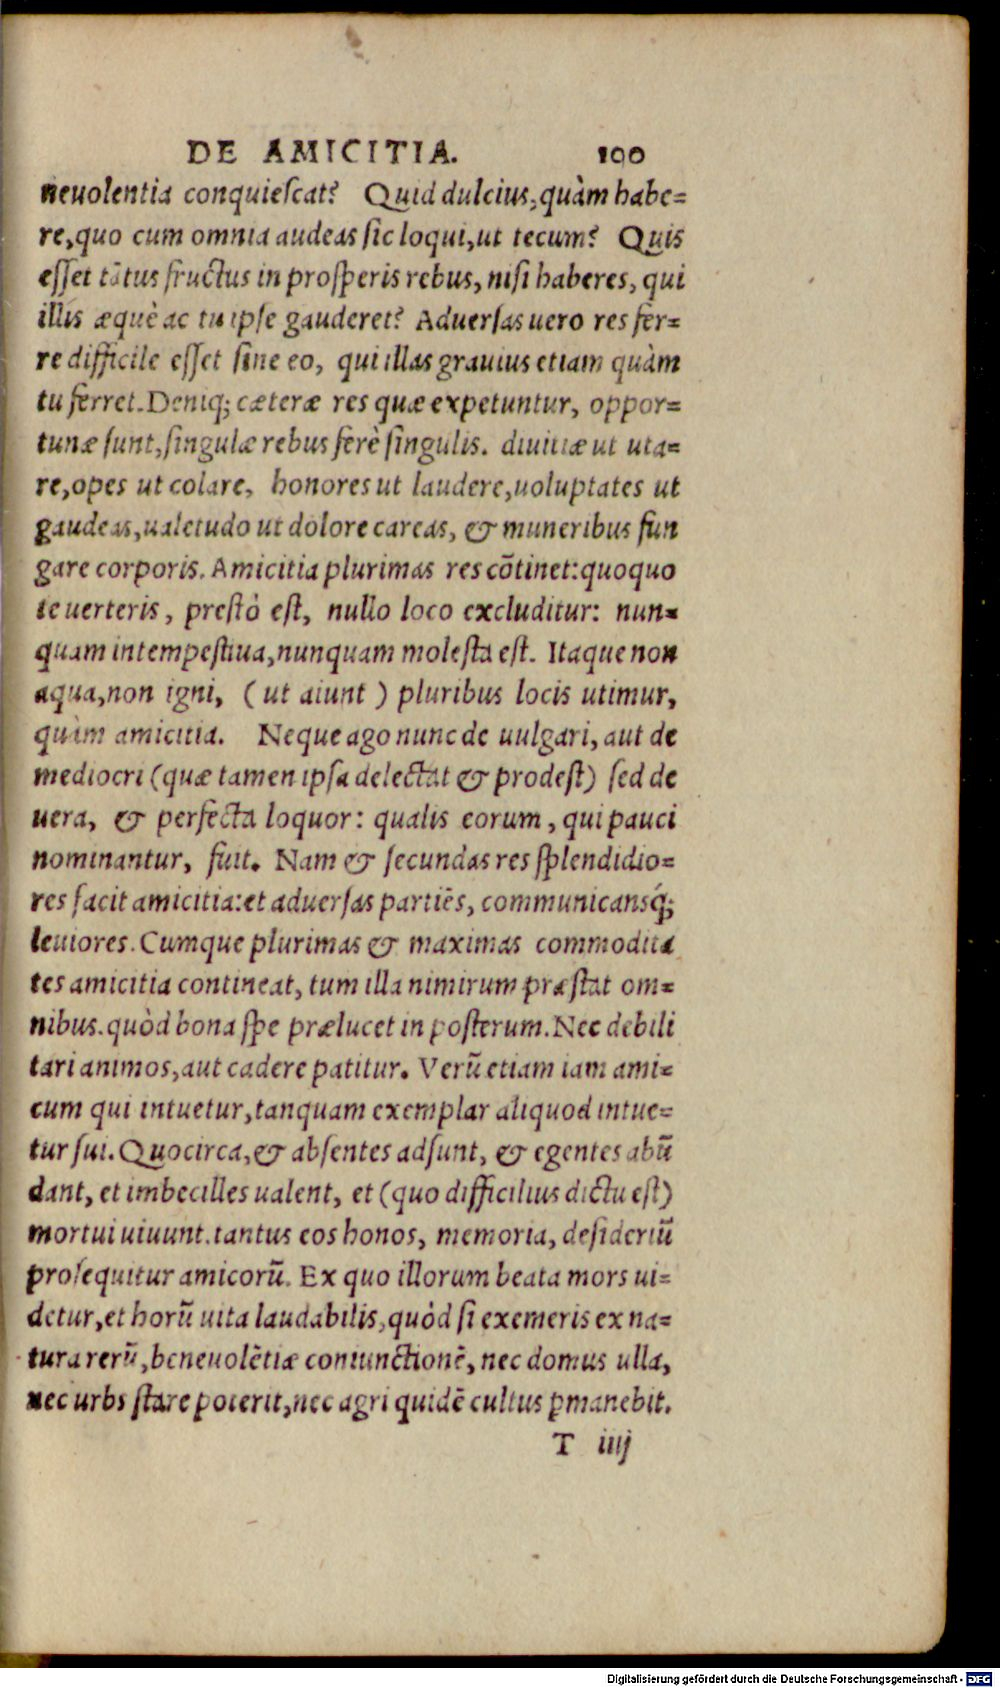 DE AMICITIA. 100
neuolentia conquieſcat? Quid dulcius, quàm habe=
re, quo cum omnia audeas ſic loqui, ut tecum? Quis
eſſet tãtus fructus in proſperis rebus, niſi haberes, qui
illis æquè ac tu ipſe gauderet? Aduerſas uero res fer=
re difficile eſſet ſine eo, qui illas grauius etiam quàm
tu ferret. Deniq; cæteræ res quæ expetuntur, oppor=
tunæ ſunt, ſingulæ rebus ferè ſingulis. diuitiæ ut uta=
re, opes ut colare, honores ut laudere, uoluptates ut
gaudeas, ualetudo ut dolore careas, & muneribus fun
gare corporis. Amicitia plurimas res cõtinet: quoquo
te uerteris, preſtò eſt, nullo loco excluditur: nun=
quam intempeſtiua, nunquam moleſta eſt. Itaque non
aqua, non igni, (ut aiunt) pluribus locis utimur,
quàm amicitia. Neque ago nunc de uulgari, aut de
mediocri (quæ tamen ipſa delectat & prodeſt) ſed de
uera, & perfecta loquor: qualis eorum, qui pauci
nominantur, fuit. Nam & ſecundas res ſplendidio=
res facit amicitia: et aduerſas partiẽs, communicansq́;
leuiores. Cumque plurimas & maximas commodita
tes amicitia contineat, tum illa nimirum præſtat om=
nibus. quòd bona ſpe prælucet in poſterum. Nec debili
tari animos, aut cadere patitur. Verũ etiam iam ami=
cum qui intuetur, tanquam exemplar aliquod intue=
tur ſui. Quocirca, & abſentes adſunt, & egentes abũ
dant, et imbecilles ualent, et (quo difficilius dictu eſt)
mortui uiuunt. tantus eos honos, memoria, deſideriũ
proſequitur amicorũ. Ex quo illorum beata mors ui=
detur, et horũ uita laudabilis, quòd ſi exemeris ex na=
tura rerũ, beneuolẽtiæ coniunctionẽ, nec domus ulla,
nec urbs ſtare poterit, nec agri quidẽ cultus ꝑmanebit.
T iiij
Digitalisierung gefördert durch die Deutsche Forschungsgemeinschaft - DFG